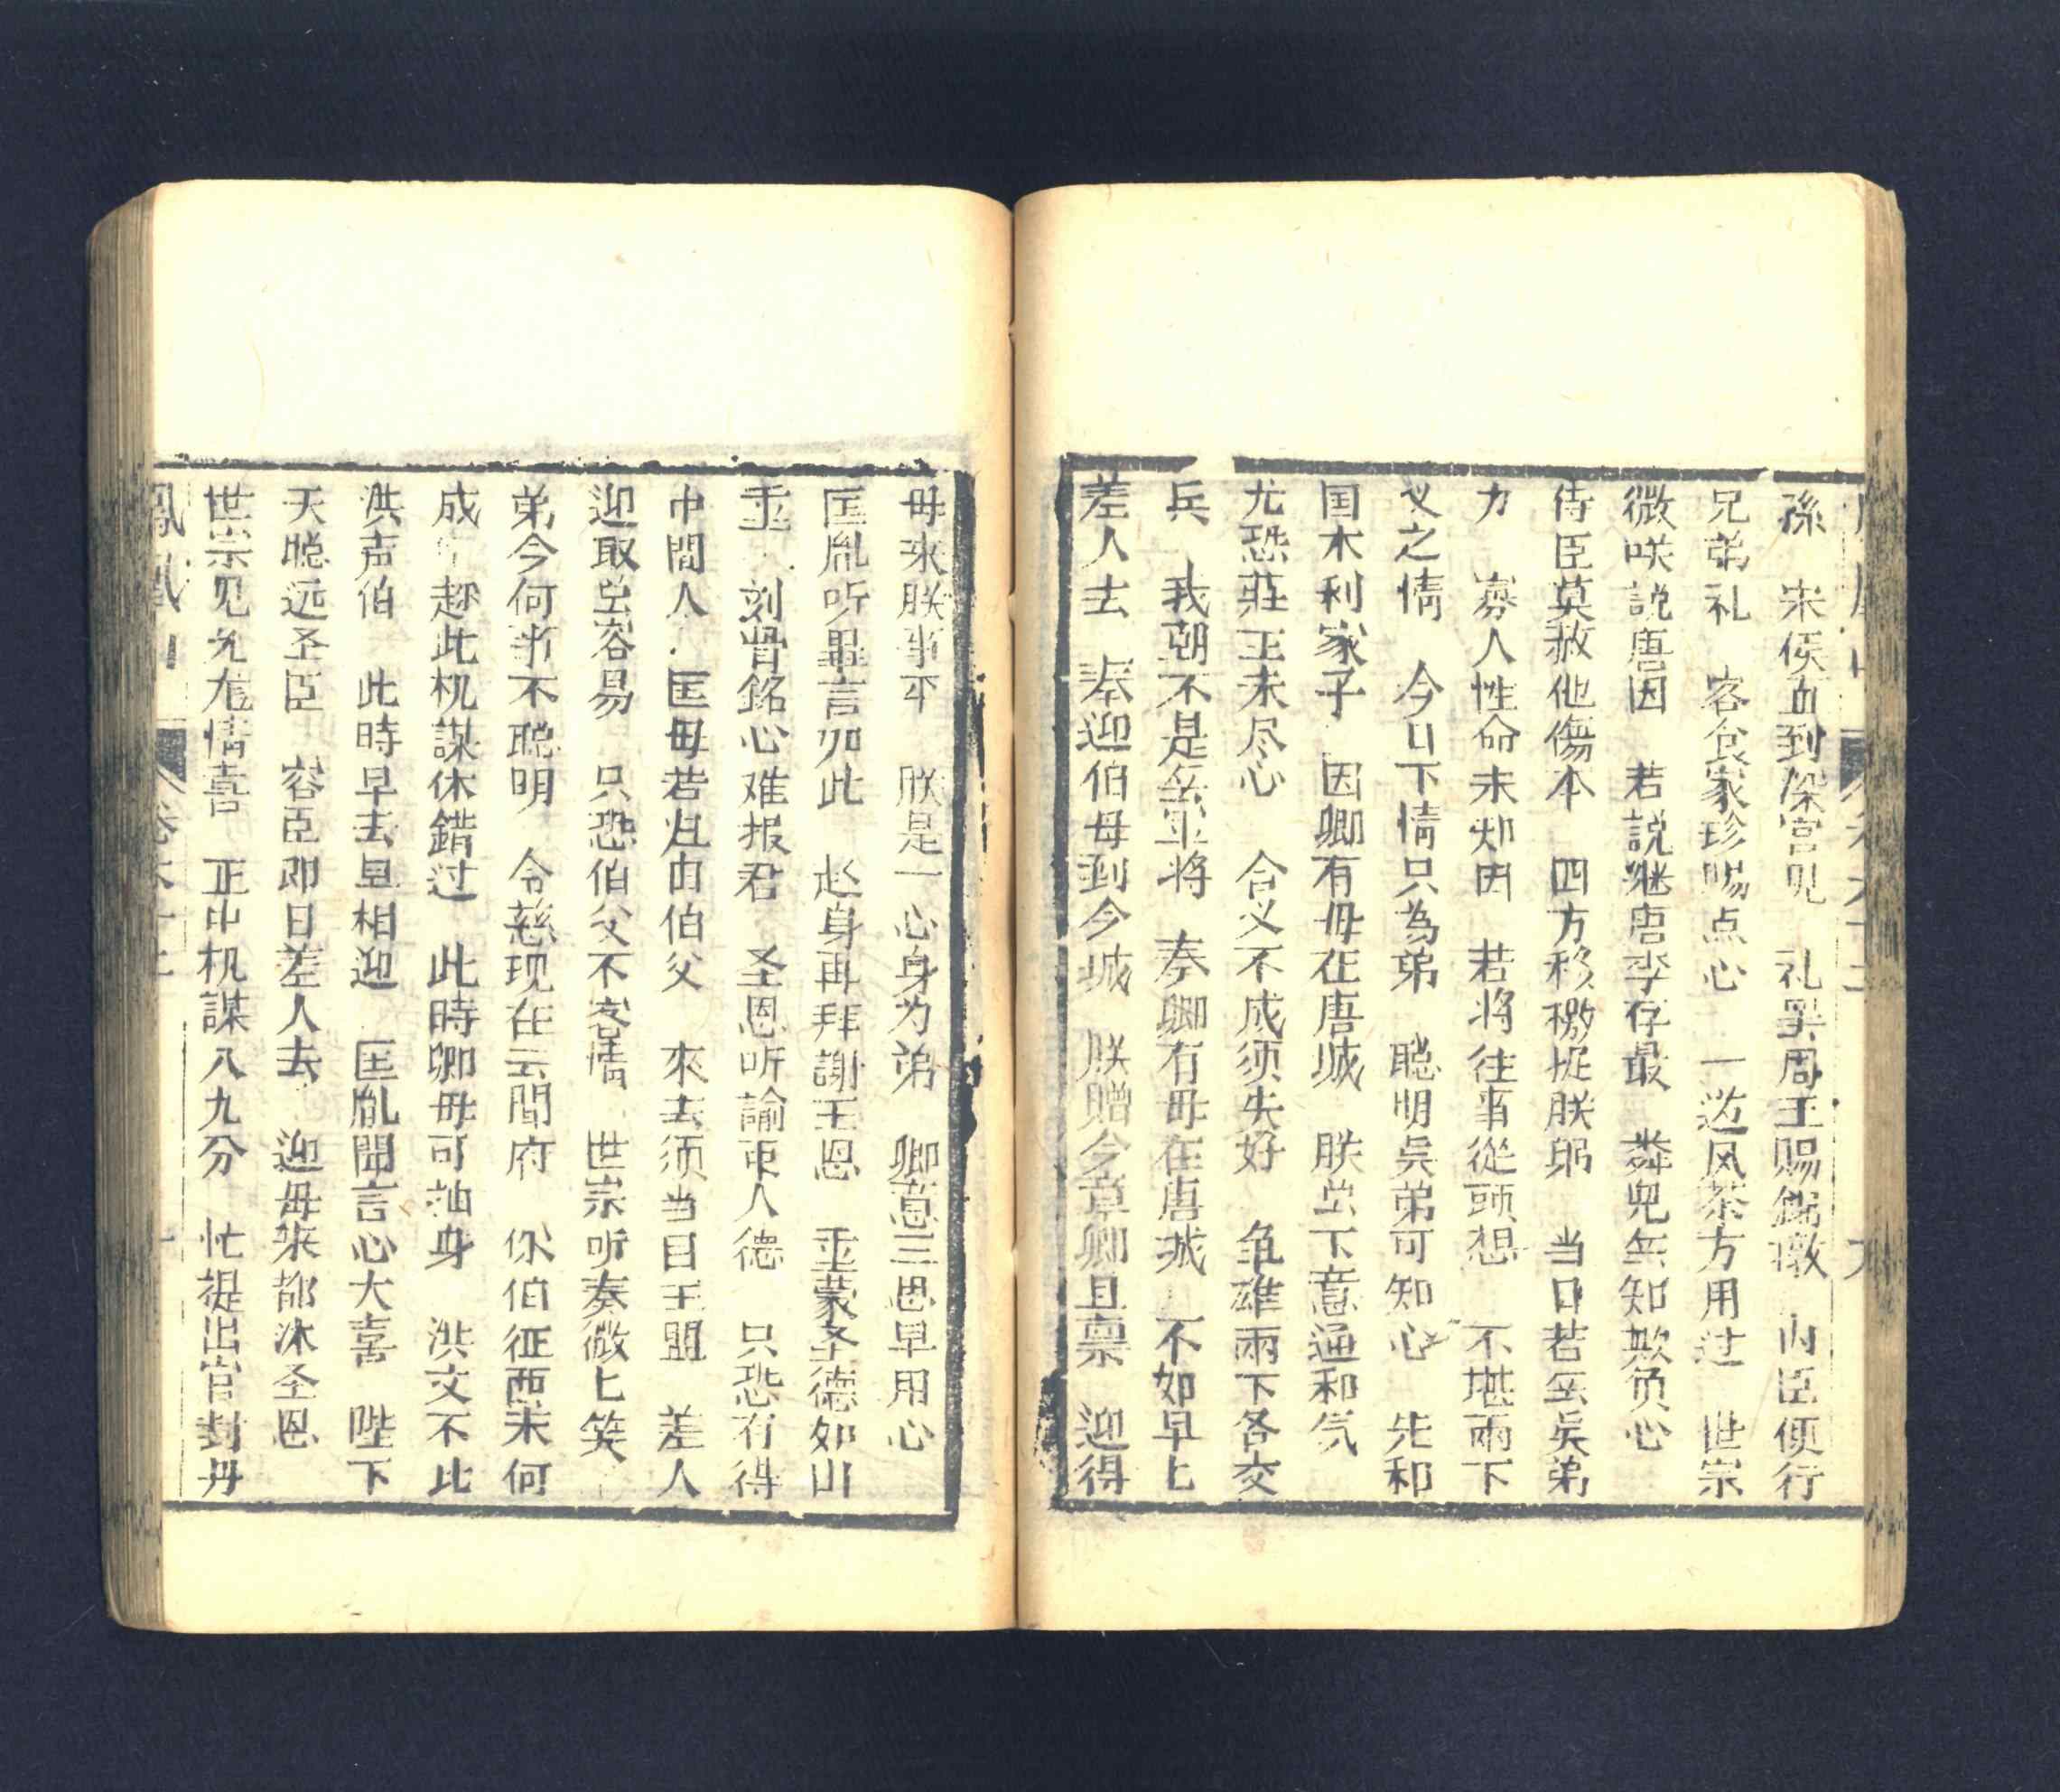 孫　宋侯直到深宮見　礼畢周王賜錦墩　内臣便行
兄弟礼　客食家珍賜点心　一迈风茶方用过　世宗
微咲説唐因　若説继唐李存最　粦兜無知欺负心
侍臣莫赦他傷本　四方移檄捉朕躬　当日若無矣弟
力　寡人性命未知因　若将往事從頭想　不堪兩下
义之情　今日下情只為弟　聪明矣弟可知心　先和
国木利家子　因卿有母在唐城　朕尝下意通和气
尤恐莊王未尽心　合义不成须失好　雖兩下各交
兵　我朝不是無王将　奏卿有毋在唐城　不如早匕
差人去　奉迎伯毋到今城　朕贈今章卿且禀　迎得
毋來朕事平　朕是一心身为弟　卿意三思早用心
匡胤听畢言如此　赵身再拜謝王恩　重蒙圣德如山
重　刻骨銘心难报君　圣恩听諭更人德　只恐有得
中間人　匡毋若赶由伯父　來去须当日王盟　差人
迎取尝容易　只恐伯父不容情　世宗听奏微匕笑
弟今何事不聪明　令慈现在云間府　你伯征西未何
成　趂此机謀休錯过　此時卿毋可抽身　洪文不比
洪声伯　此時早去早相迎　匡胤聞言心大喜　陛下
天聪远圣臣　容臣即日差人去　迎毋來都沐圣恩
世宗见允龙情喜　正中机謀八九分　忙提出宫封丹
鳳凰山　卷六十七